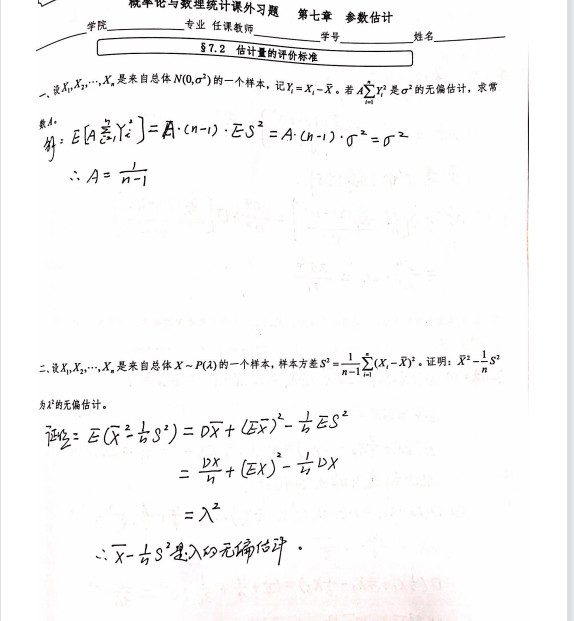 概率论与数理统计课外习题 第七章 参数估计
学院 专业 任课教师 学号 姓名
§7.2 估计量的评价标准
一、设X₁,X₂,⋯,Xₙ是来自总体N(0,σ²)的一个样本，记Yᵢ=Xᵢ-X̄。若A∑ᵢ₌₁ⁿYᵢ²是σ²的无偏估计，求常
数A。
解：E[A∑ᵢ₌₁ⁿYᵢ²]=A·(n-1)·ES²=A·(n-1)·σ²=σ²
∴A=1/(n-1)
二、设X₁,X₂,⋯,Xₙ是来自总体X~P(λ)的一个样本，样本方差S²=1/(n-1)∑ᵢ₌₁ⁿ(Xᵢ-X̄)²。证明：X̄²-1/n S²
为λ²的无偏估计。
E(X̄²-1/n S²)=DX̄+(EX̄)²-1/n ES²
=DX/n+(EX)²-1/n DX
=λ²
∴X̄-1/n S²是λ的无偏估计。